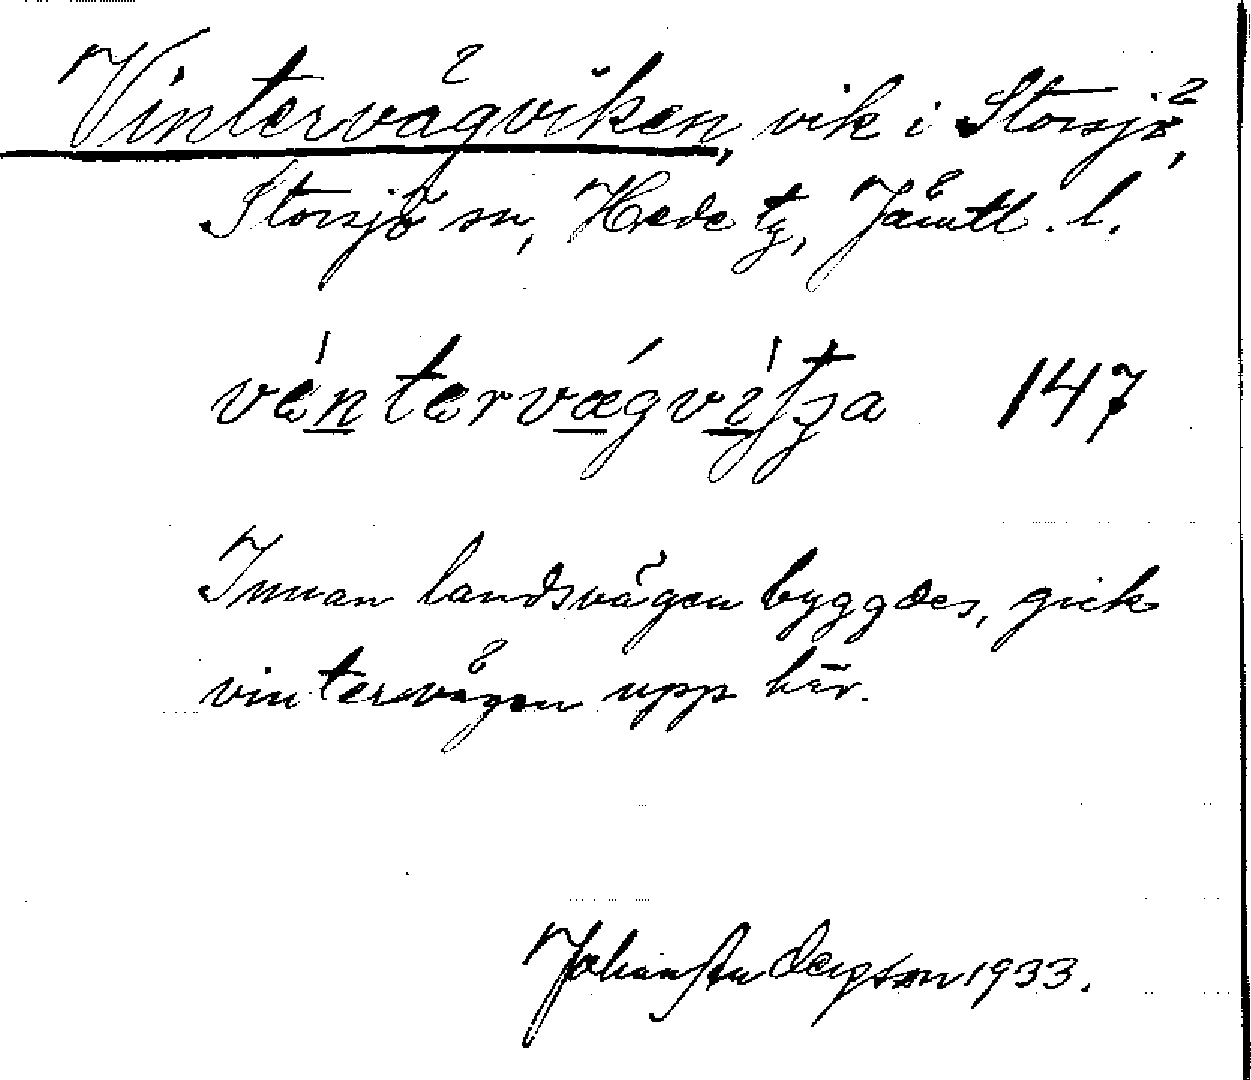 Vintervägviken, vik i Storsjö,
Storsjö sn, Hede tg, Jämtl. l.
väntervægvıtʃa 147
Innan landsvägen byggdes, gick
vintervägen upp här.
1933.